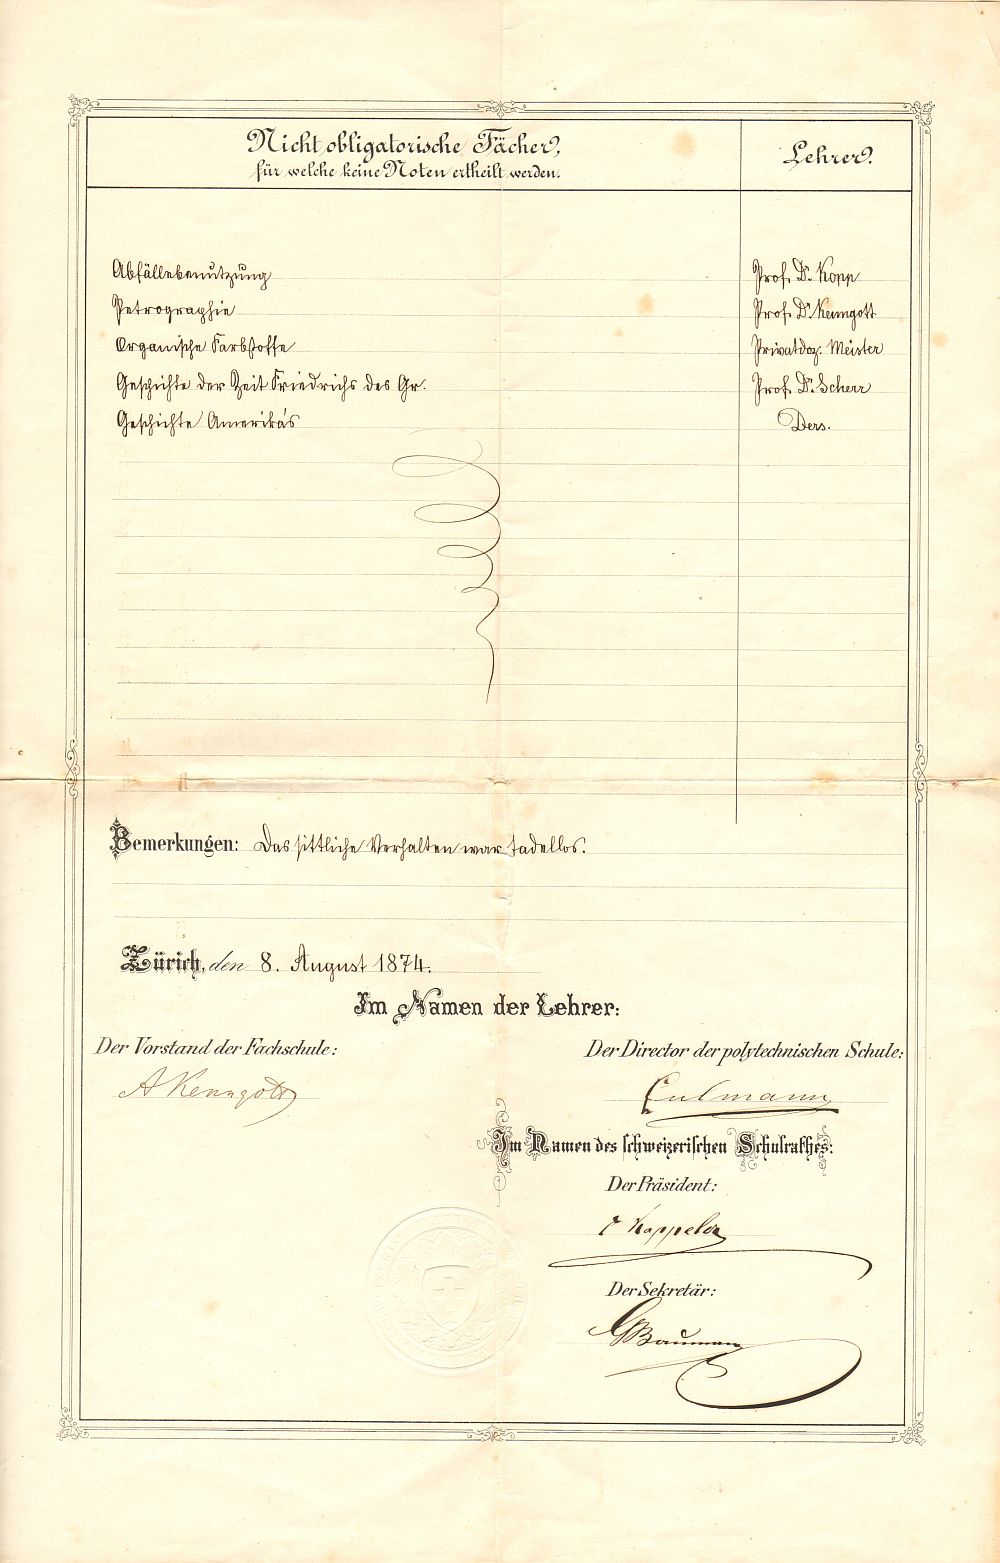 Nicht obligatorische Fächer,
für welche keine Noten ertheilt werden.
Lehrer.
Abfällebenutzung Prof. Dr. Kopp
Petrographie Prof. Dr. Kenngott
Organische Farbstoffe Privatdoz. Meister
Geschichte der Zeit Friedrichs des Gr. Prof. Dr. Scherr
Geschichte Amerika's Ders.
Bemerkungen: Das sittliche Verhalten war tadellos.
Zürich, den 8. August 1874.
Im Namen der Lehrer:
Der Vorstand der Fachschule: Der Director der polytechnischen Schule:
A Kenngott Culmann
Im Namen des schweizerischen Schulrathes:
Der Präsident:
C Kappeler
Der Sekretär:
G Bauman